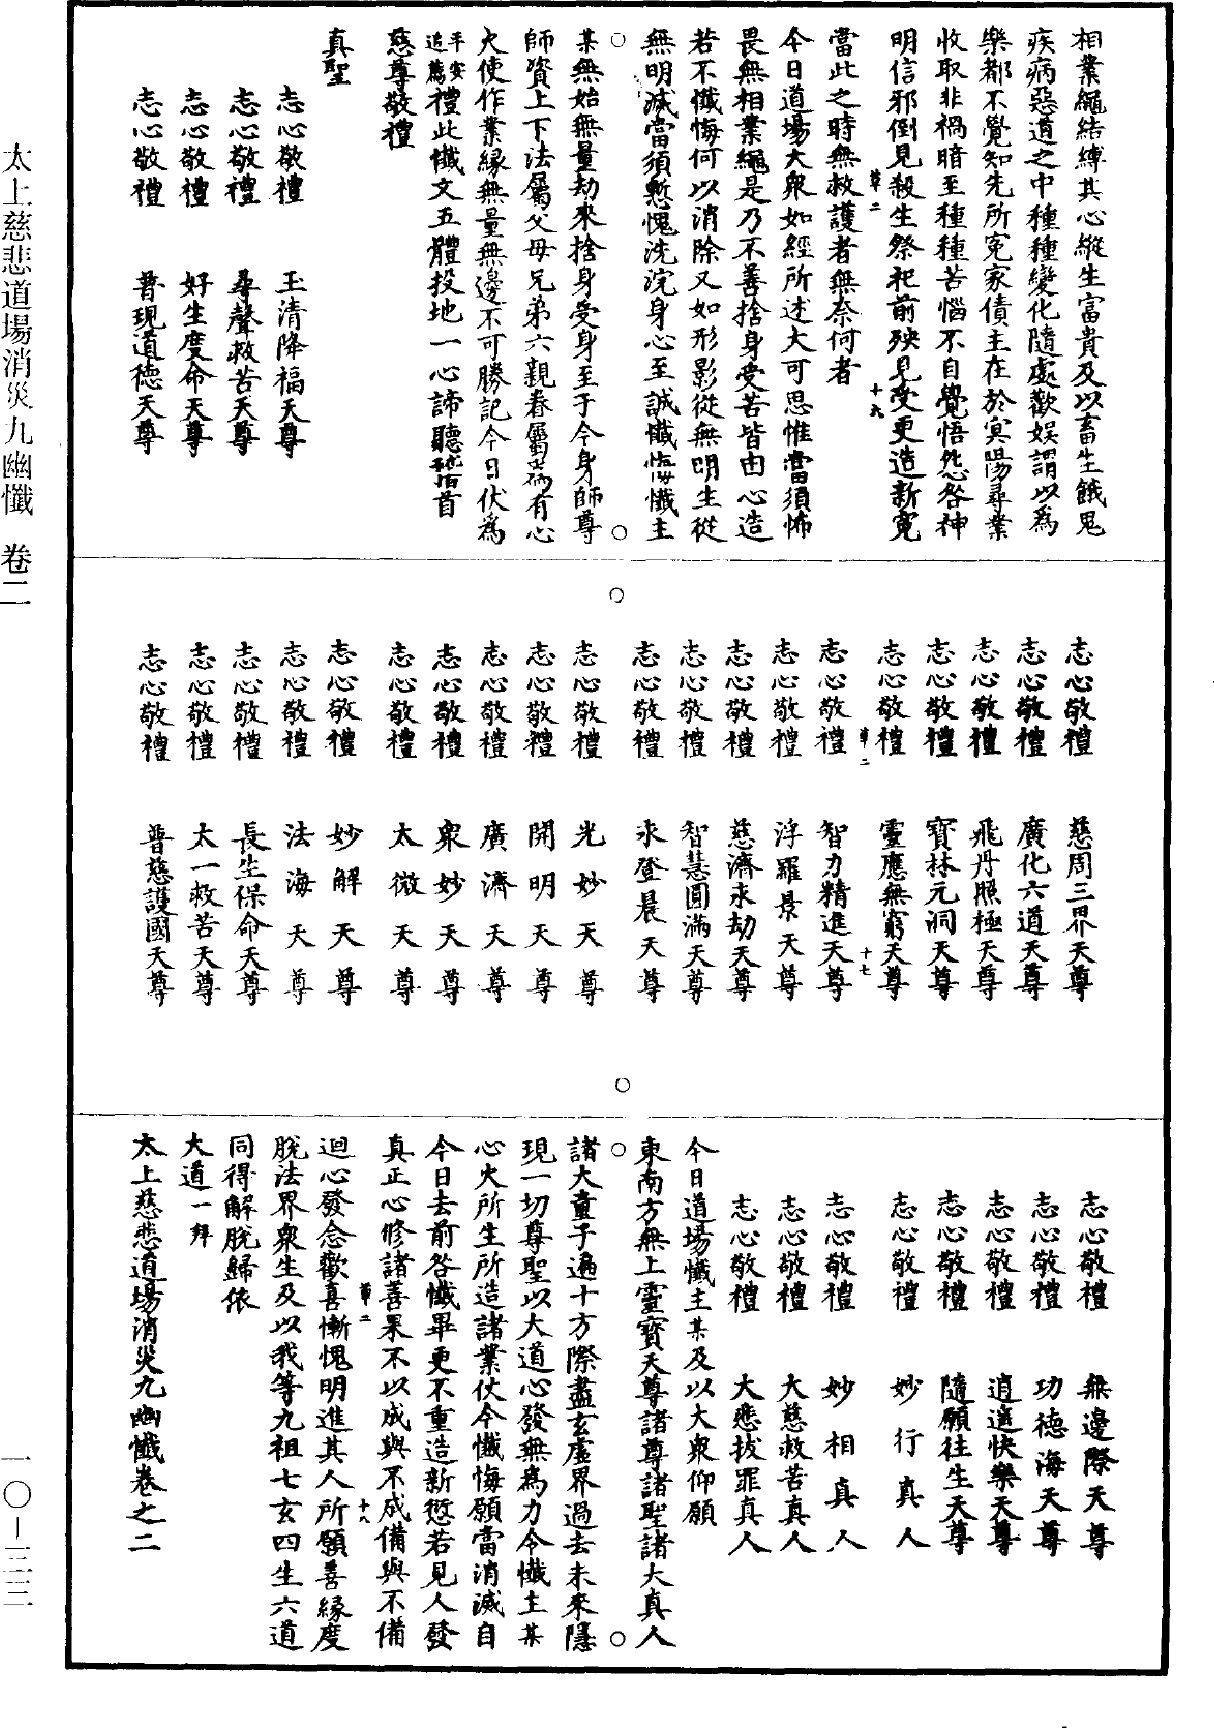 太上慈悲道場消災九幽懺　卷二
一〇－三三
相業繩結縛其心縱生富貴及以畜生餓鬼
疾病惡道之中種種變化隨處歡娛謂以為
樂都不覺知先所冤家債主在於冥陽尋業
收取非禍暗至種種苦惱不自覺悟怨咎神
明信邪倒見殺生祭祀前殃見受更造新冤
當此之時無救護者無奈何者
今日道場大眾如經所述大可思惟當須怖
畏無相業繩是乃不善捨身受苦皆由心造
若不懺悔何以消除又如形影從無明生從
無明滅當須慙愧洗浣身心至誠懺悔懺主
某無始無量劫來捨身受身至于今身師尊
師資上下法屬父母兄弟六親眷屬為有心
火使作業緣無量無邊不可勝記今日伏為
平安追薦禮此懺文五體投地一心諦聽稽首
慈尊敬禮
真聖
志心敬禮　玉清降福天尊
志心敬禮　尋聲救苦天尊
志心敬禮　好生度命天尊
志心敬禮　普現道德天尊
志心敬禮　慈周三界天尊
志心敬禮　廣化六道天尊
志心敬禮　飛丹照極天尊
志心敬禮　寶林元洞天尊
志心敬禮　靈應無窮天尊
志心敬禮　智力精進天尊
志心敬禮　浮羅景天尊
志心敬禮　慈濟永劫天尊
志心敬禮　智慧圓滿天尊
志心敬禮　永登晨天尊
志心敬禮　光妙天尊
志心敬禮　開明天尊
志心敬禮　廣濟天尊
志心敬禮　眾妙天尊
志心敬禮　太微天尊
志心敬禮　妙解天尊
志心敬禮　法海天尊
志心敬禮　長生保命天尊
志心敬禮　太一救苦天尊
志心敬禮　普慈護國天尊
志心敬禮　無邊際天尊
志心敬禮　功德海天尊
志心敬禮　逍遙快樂天尊
志心敬禮　隨願往生天尊
志心敬禮　妙行真人
志心敬禮　妙相真人
志心敬禮　大慈救苦真人
志心敬禮　大悲拔罪真人
今日道場懺主某及以大眾仰願
東南方無上靈寶天尊諸尊諸聖諸大真人
諸大童子遍十方際盡玄虛界過去未來隱
現一切尊聖以大道心發無為力令懺主某
心火所生所造諸業仗今懺悔願當消滅自
今日去前咎懺畢更不重造新愆若見人發
真正心修諸善果不以成與不成備與不備
迴心發念歡喜慚愧明進其人所願善緣度
脫法界眾生及以我等九祖七玄四生六道
同得解脫歸依
大道一拜
太上慈悲道場消災九幽懺卷之二